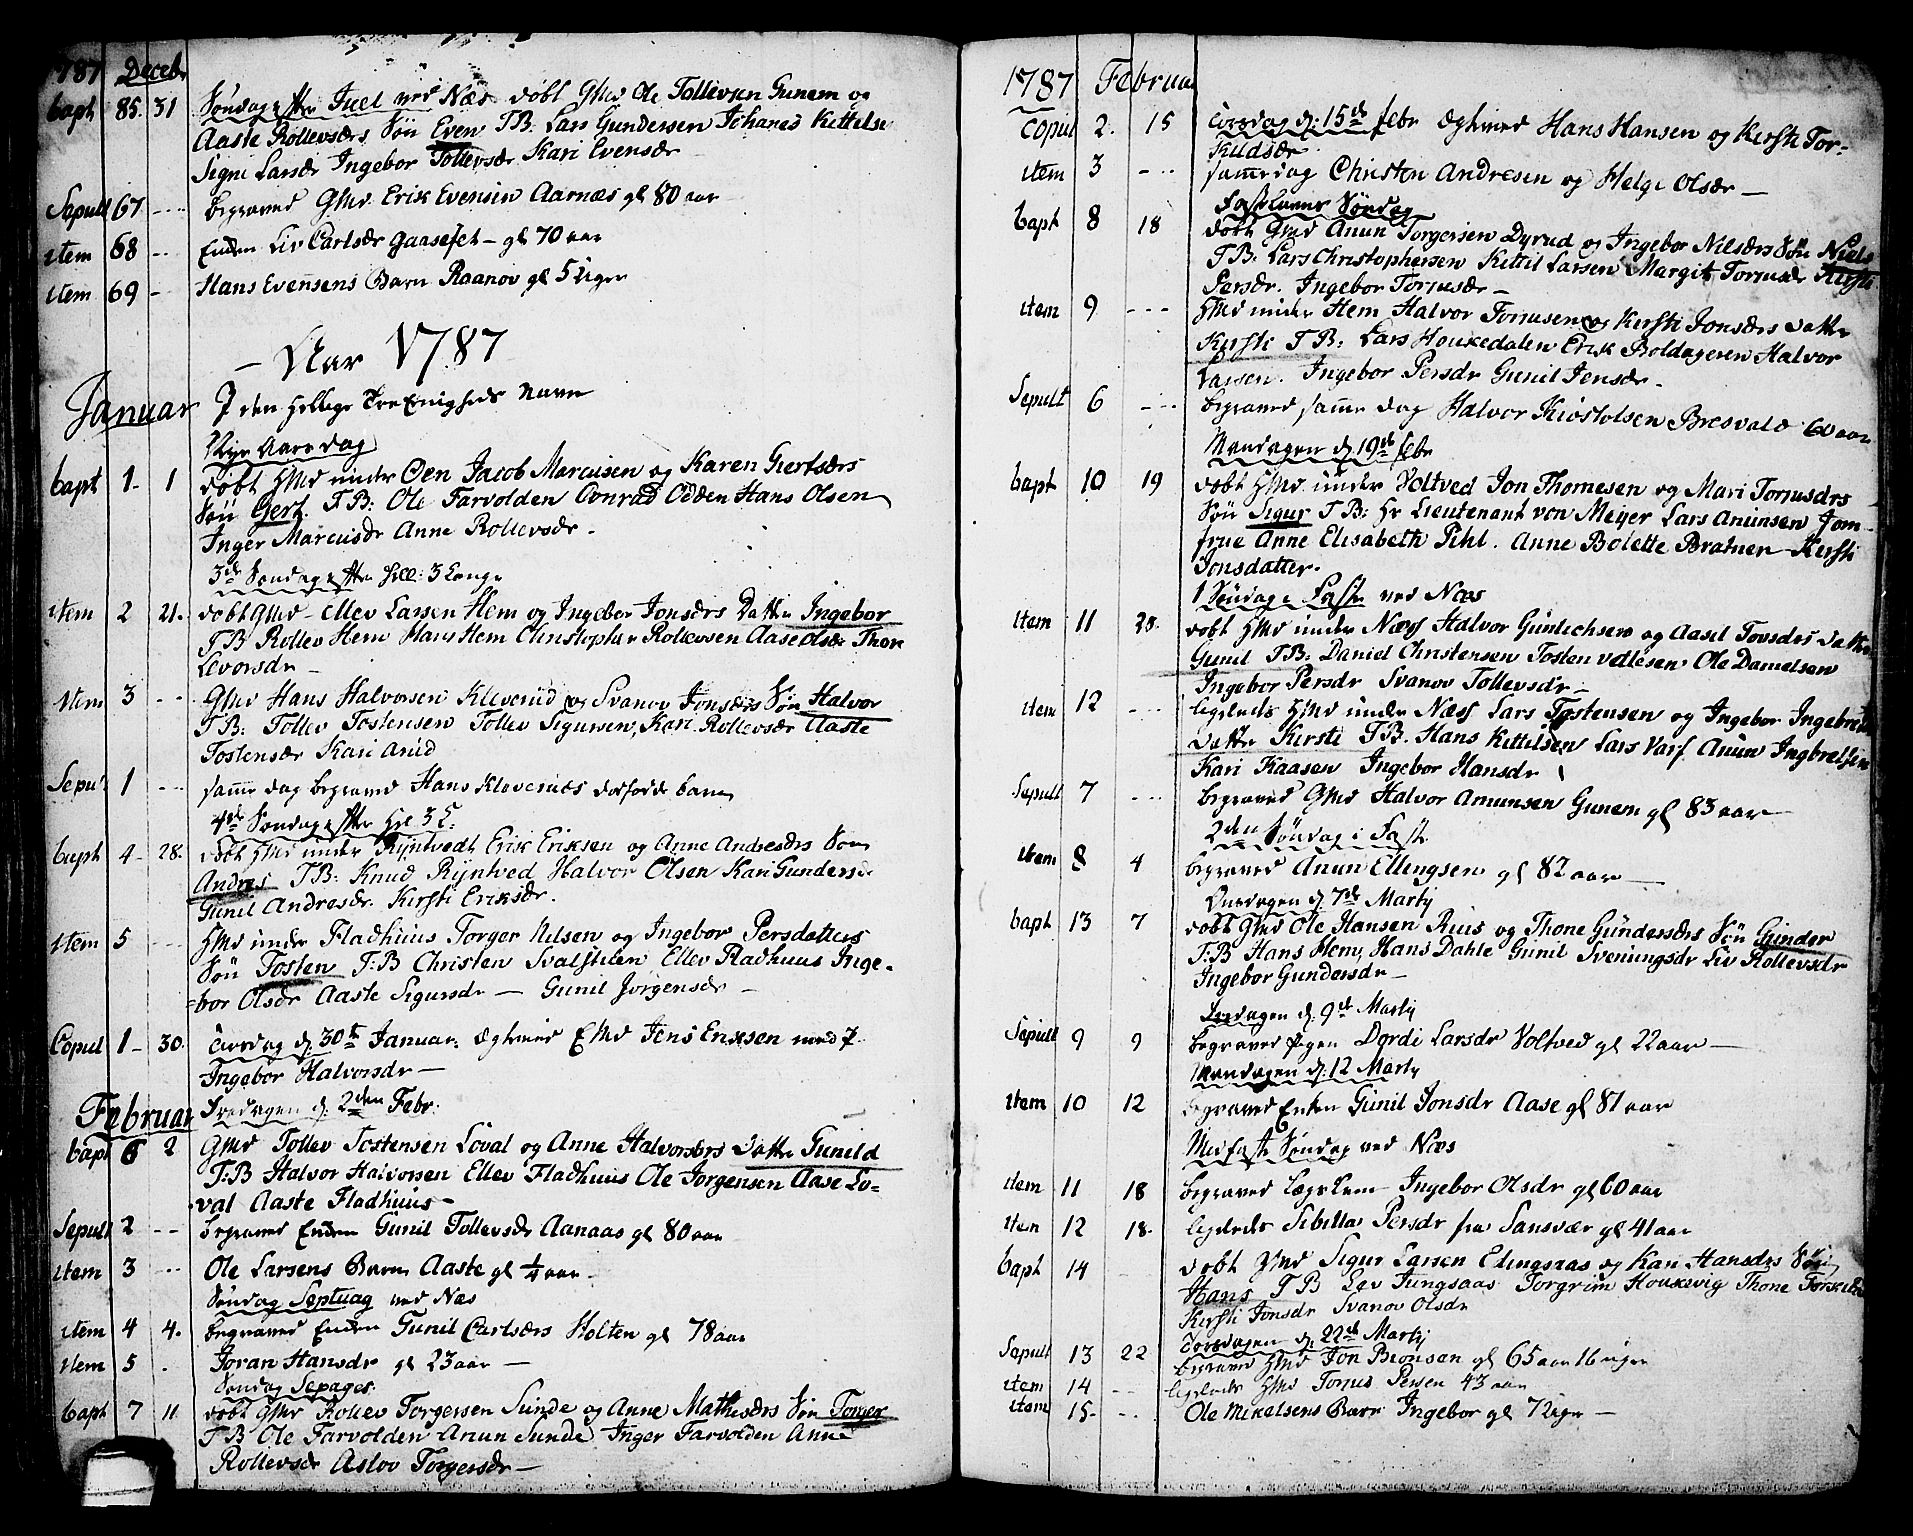 1787 Decebr
bapt 85. 31 Søndag efter Juel ved Næs døbt GMd Ole Tollevsen Gunem og
Aaste Rollevsdrs Søn Even TB: Lars Gundersen Johanes Kittelse
Signi Larsdr Ingebor Tollevsdr Kari Evensdr
Sepult 67 --- begraved GMd Erik Evensen Aarnæs gl 80 aar
item 68 -- Enken Liv Carlsdr Gaasefet gl 70 aar
item 69 - Hans Evensens Barn Raanov gl 5 Uger
- Aar 1787
Januar J den hellige Tre Enigheds navn
Nye Aars dag
bapt 1- 1 døbt HMd under Oen Jacob Marcusen og Karen Giertsdrs
Søn Gert. TB: Ole Farvolden Conrad Odden Hans Olsen
Inger Marcusdr Anne Rollevsdr.
3de Søndag efter Hell: 3 Konge
item 2 21. døbt GMd Ellev Larsen Hem og Ingebor Jonsdrs Datter Ingebor
TB Rollev Hem Hans Hem Christopher Rollevsen Aase Olsdr Thor
Levorsdr
item 3 -- GMd Hans Halvorsen Kleverud og Svanov Jonsdrs Søn Halvor
TB: Tollev Tostensen Tollev Sigursen, Kari Rollevsdr Aaste
Tostensdr Kari Arud
Sepu 1 --- samme dag begraved Hans Kloveruds barn
4de Søndag efter Hel 3 K.
bapt 4- 28. døbt HMd under Rÿntvedt Erik Eriksen og Anne Andresdrs Søn
Andres TB: Knud Rÿntved Halvor Olsen Kari Gundersd
Gunil Andresdr. Kirsti Eriksdr.
item 5 --- HMd under Fladhuus Torger Nilsen og Ingebor Persdatters
Søn Tosten T:B Christen Svalstilen Ellev Fladhuus Inge-
=bor Olsdr Aaste Sigursdr - Gunil Jorgensdr -
Copul 1- 30. Tirsdag d. 30te Januar: Egteviet EMd Jens Eriksen med P.
Ingebor Halvorsdr
Februar Fredagen d: 2den Febr:
bapt 6 2 GMd Tollev Tostensen Loval og Anne Halvorsdrs Datter Gunild
T:B Halvor Halvorsen Ellev Fladhuus Ole Jorgensen Aase Lo-
val Aaste Fladhuus
Sepult 2 -- begraved Enken Gunil Tollevsdr Aanaas gl 80 aar
item 3 -- Ole Larsens Barn Aaste gl 1/4 aar.
Søndag Septuag ved Næs
item 4 4. begraved Enken Gunil Carlsdrs Holten gl 78 aar
item 5 . Joran Hansdr gl 23 aar
Søndag Sepages.
bapt 7 11 døbt GMd Rollev Torgersen Sunde og Anne Mathisdrs Søn Torger
TB Ole Farvolden Anun Sunde Inger Farvolden Anne
Rollevsdr Aslov Torgersdr
1787 Februa
Copul 2. 15 Torsdag d: 15de febr Egteviet Hans Hansen og Kirsti Tor-
kildsdr
item 3 --- samme dag Christen Andresen og Helge Olsdr
Fastelavns Søndag
bapt 8 18 døbt GMd Anun Torgersen Dyrud og Ingebor Nilsdrs Søn Niels
TB: Lars Christophersen Kittil Larsen Margit Torrusdr Kirsti
Persdr. Ingebor Torrusdr
item 9 --- HMd under Hem Halvor Torrusen og Kirsti Jonsdrs Datter
Kirsti TB: Lars Houkedalen Erik Boldageren Halvor
Larsen. Ingebor Persdr Gunil Jensdr.
Sepult 6 --- begraved samme dag Halvor Kiostolsen Bresvald 60 aar
Mandagen d 19de febr
bapt 10 19 døbt HMd under Voltved Jon Thomesen og Mari Torrusdrs
Søn Sigur TB: Hr Lieutenant von Meyer Lars Anunsen Jom-
frue Anne Elisabeth Pihl. Anne Bolette Bratner Kirsti
Jonsdatter.
1 Søndag i Faste ved Næs
item 11 28. døbt HMd under Næss Halvor Gunlichsen og Aasil Tovsdrs Datter
Gunil TB: Daniel Christensen Tosten Vetlesen Ole Danielsen
Ingebor Persdr Svanov Tollevsdr
item 12 --- ligeledes HMd under Næss Lars Tostensen og Ingebor Ingebrets
Datter Kirsti TB. Hans Kittilsen Lars Varf Anun Ingbretsen
Kari Kaasen Ingebor Hansdr
Sepult 7 --- begraved GMd Halvor Amunsen Gunem gl 83 aar
2den Søndag i Faste
item 8 4 begraved Anun Ellingsen gl 82 aar
Onsdagen d. 7de Martÿ
bapt 13 7 døbt GMd Ole Hansen Ruis og Thone Gundersdrs Søn Gunder
T:B Hans Hem, Hans Dahle Gunil Sveningsdr Liv Rollevsdr
Ingebor Gundersdr
Fredagen d. 9de Martÿ
Sepult 9 9 begraved Pigen Dordi Larsdr Voltved gl 22 aar
Mandagen d: 12 Martÿ
item 10 12 begraved Enken Gunil Jonsdr Aase gl 81 aar
Midfaste Søndag ved Næs
item 11 18 begraved Lægslem Ingebor Olsdr gl 60 aar
item 12 18. ligeledes Sibilla Persdr fra Sansvær gl 41 aar
bapt 14 døbt HMd Sigur Larsen Elingsaas og Kari Hansdrs Søn
Hans TB Lev Jungsaas Torgrim Houkevig Thone Torskild
Kirsti Jonsdr Svanov Olsdr
Torsdagen d. 22de Martÿ
Sepult 13 22 begraved HMd Jon Bionsen gl 65 aar 16 uger
item 14 -- ligeledes HMd Torrus Persen 43 aar
item 15- -- Ole Mikelsens Barn Ingebor gl 7 Uger